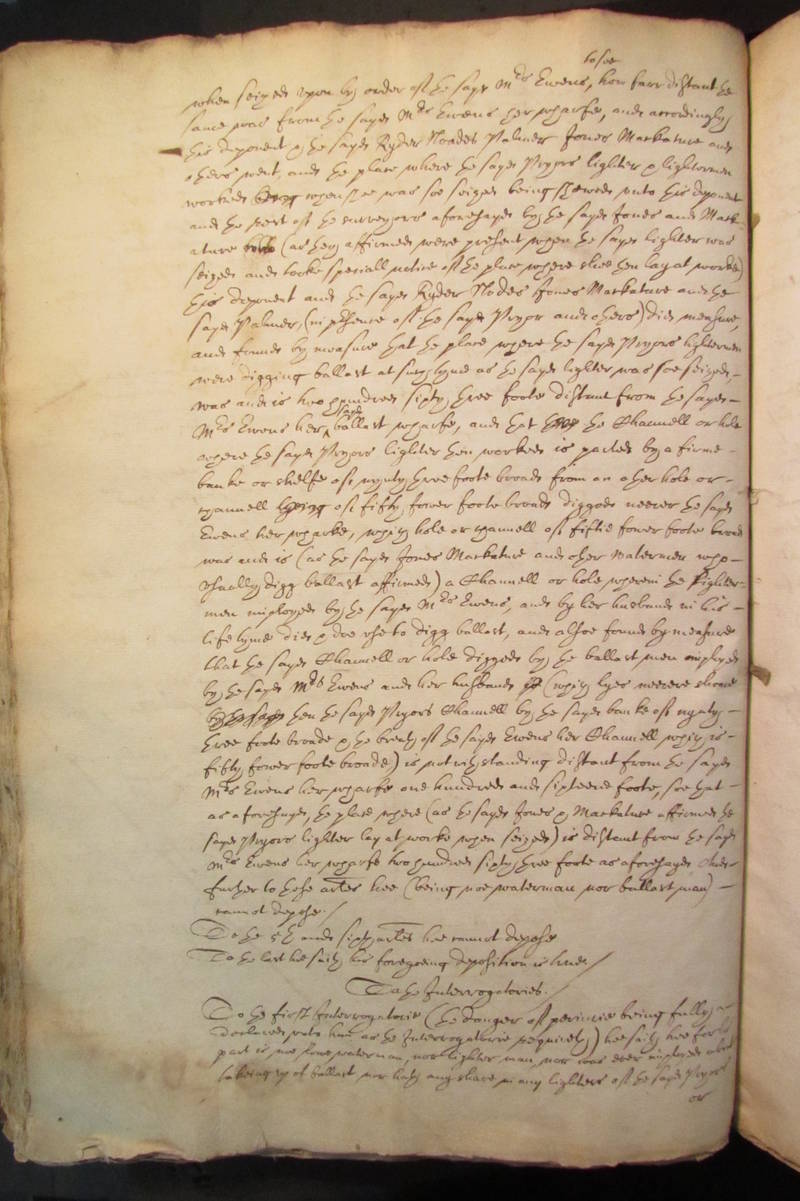 to see
when seized upon by order of the sayd Mrs Ewens, how farr distant the
same was from the sayd Mrs Ewens her wharfe, and accordingly
this deponent & the sayd Ryder Noades Palmer Jones Markature and
others went, and the place where the sayd Pryors lighter & lightermen
worked when shee was soe seized being shewed unto this deponent
and the rest of the surveyors aforesayd by the sayd Jones and Mark-
ature (as they affirmed were present when the sayd lighter was
seized and tooke speciall notice of the place where shee then lay at worke)
this deponent and the sayd Ryder Nodes Jones Markature and the
sayd Palmer, (in presence of the sayd Pryor and others) did measure,
and found by measure that the place where the sayd Pryors lightermen
were digging ballast at such tyme as the sayd lighter was soe seized,-
was and is two hundred sixty three foote distant from the sayd-
Mrs Ewens her sayd ballast wharfe, and that the Channell or hole
where the sayd Pryors lighter then worked is parted by a firme-
banke or shelfe of nynty three foote broad from an other hole or-
channell being of fifty fower foote broad digged neerer the sayd
Ewens her wharfe, which hole or channell of fiftie fower foote broad
was and is (as the sayd Jones Markature and other watermen who-
usually digg ballast affirmed) a Channell or hole wherein the lighter-
men imployed by the sayd Mrs Ewens, and by her husband in his-
life tyme did & doe use to digg ballast, and alsoe found by measure
that the sayd Channell or hole digged by the ballast men imployed
by the sayd Mrs Ewens and her husband (which lyes neerer shoare
then the sayd Pryors Channell by the sayd banke of nynty-
three foote broade & the breadth of the sayd Ewens her Channell which is-
fifty fower foote broade) is notwithstanding distant from the sayd
Mrs Ewens her wharfe one hundred and sixteene foote, soe that-
as aforesayd, the place where (as the sayd Jones & Markature affirmed the
sayd Pryors lighter lay at worke when seized) is distant from the sayd
Mrs Ewens her wharfe two hundred sixty three foote as aforesayd And-
further to these articles hee (being noe waterman nor ballast man)-
cannot depose./
To the 5th and sixth articles hee cannot depose
To the last hee saith his foregoeing deposition is true./
To the Interrogatories./
To the first Interrogatorie (the danger of periurie being fully
declared unto him as the Interrogatorie requireth) hee saith hee for his
part is noe waterman, nor lighter man, nor was ever imployed about
takeing up of ballast nor hath any share in any lighters of the sayd Pryors
or